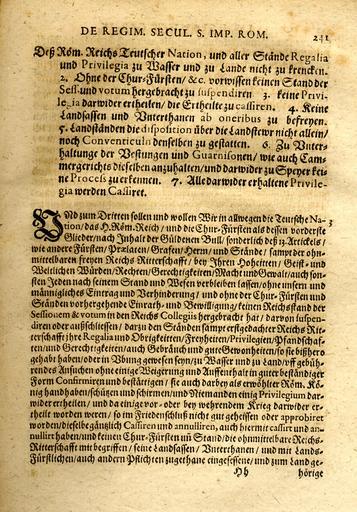 DE REGIM. SECUL. S. IMP. ROM.
241
Deß Röm. Reichs Teutscher Nation, und aller Stände Regalia
und Privilegia zu Wasser und zu Lande nicht zu krencken.
2. Ohne der Chur-Fürsten/ &c. vorwissen keinen Stand der
Sess- und votorum hergebracht zu suspendiren 3. keine Privi-
legia darwider ertheilen/ die Ertheilte zu cassiren. 4. Keine
Landsassen und Unterthanen ab oneribus zu befreyen.
5. Landständen die disposition über die Landstewr nicht allein/
noch Conventicula denselben zu gestatten. 6. Zu Unter-
haltunge der Vestungen und Guarnisonen/ wie auch Cam-
mergerichts dieselben anzuhalten/ und darwider zu Speyer kei-
ne Process zu erkennen. 7. Alle darwider erhaltene Privile-
gia werden Cassiret.
UNd zum Dritten sollen und wollen Wir in allwegen die Teutsche Na-
3
tion/ das H. Röm. Reich/ und die Chur-Fürsten als dessen vorderste
Glieder/ nach Inhalt der Güldenen Bull/ sonderlich deß 13. Artickels/
wie andere Fürsten/ Prælaten/ Grafen/ Herrn/ und Stände/ sampt der ohn-
mittelbaren freyen Reichs Ritterschafft/ bey Ihren Hoheiten/ Geist- und
Weltlichen Würden/ Rechten/ Gerechtigkeiten/ Macht und Gewalt/ auch son-
sten Jeden nach seinem Stand und Wesen verbleiben lassen/ ohne unsern und
männigliches Eintrag und Verhinderung/ und ohne der Chur-Fürsten und
Ständen vorhergehende Einrath- und Bewilligung/ keinen Reichsstand der
Sessionem & votum in den Reichs Collegiis hergebracht hat/ darvon suspen-
diren oder außschliessen/ darzu den Ständen sampt erstgedachter Reichs Rit-
terschafft ihre Regalia und Obrigkeiten/ Freyheiten/ Privilegien/ Pfandschaf-
ten/ und Gerechtigkeiten/ auch Gebräuch und gute Gewonheiten/ so sie bißhero
gehabt haben/ oder in Übung gewesen seyn/ zu Wasser und zu Land/ uff gebüh-
rendes Ansuchen ohne einige Weigerung und Auffenthalt in guter beständiger
Form Confirmiren und bestätigen/ sie auch darbey als erwöhlter Röm. Kö-
nig handhaben/ schützen und schirmen/ und Niemanden einig Privilegium dar-
wider ertheilen/ und da einige vor- oder bey wehrendem Krieg darwider er-
theilt worden weren/ so im Friedenschluß nicht gut geheissen oder approbiret
worden/ dieselbe gäntzlich Cassiren und annulliren, auch hiermit cassirt und an-
nullirt haben/ und keinen Chur-Fürsten uñ Stand/ die ohnmittelbare Reichs-
Ritterschafft mit begriffen/ seine Landsassen/ Unterthanen/ und mit Lands-
Fürstlichen/ auch andern Pflichten zugethane eingesessene/ und zum Land ge-
Hh
hörige